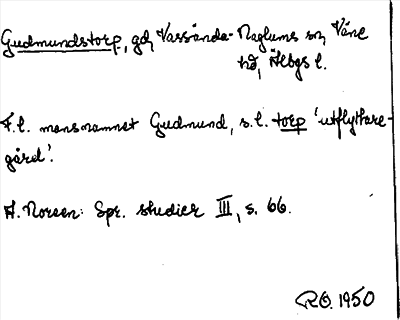 Gudmundstorp, gd, Vassända-Naglums sn, Väne
hd, Älvbgs l.
F.l. mansnamnet Gudmund, s.l. torp 'utflyttare-
gård'.
A. Noreen: Spr. studier III, s. 66.
R.O. 1950